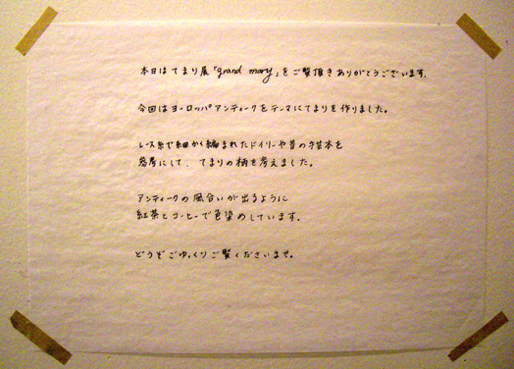 本日はてまり展「grand mary」をご覧頂きありがとうございます。
今回はヨーロッパアンティークをテーマにてまりを作りました。
レース糸で細かく編まれたドイリーや昔の洋書本を
参考にして、てまりの柄を考えました。
アンティークの風合いが出るように
紅茶とコーヒーで色染めしています。
どうぞごゆっくりご覧くださいませ。